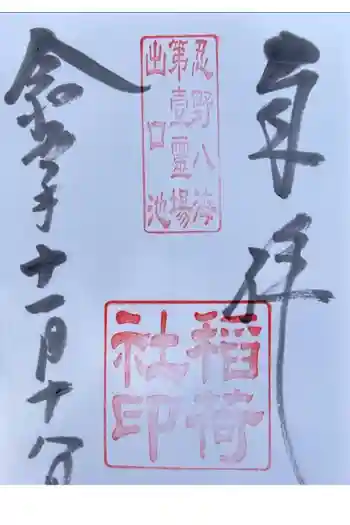 奉拝
忍野八海
第壹霊場
出口池
稲荷
社印
令和 年十一月十日